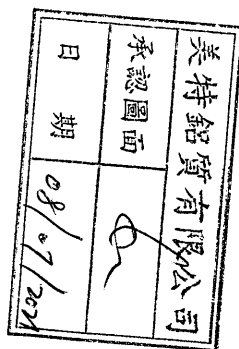 美特鋁質有限公司
承認圖面
日期 08/07/2021